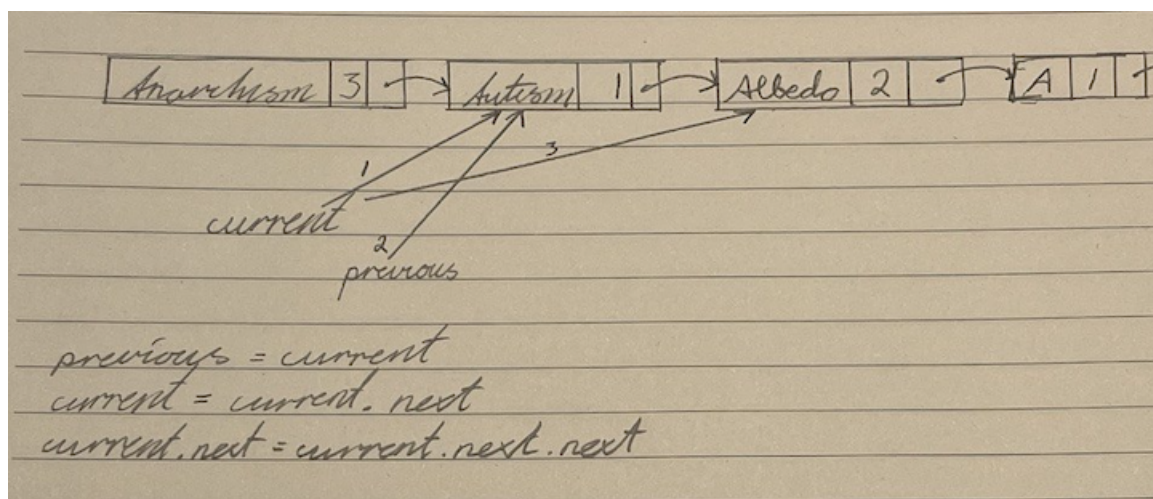 Anarchism 3 Autism 1 Albedo 2 A 1
1
3
current
2
previous
previous = current
current = current.next
current.next = current.next.next